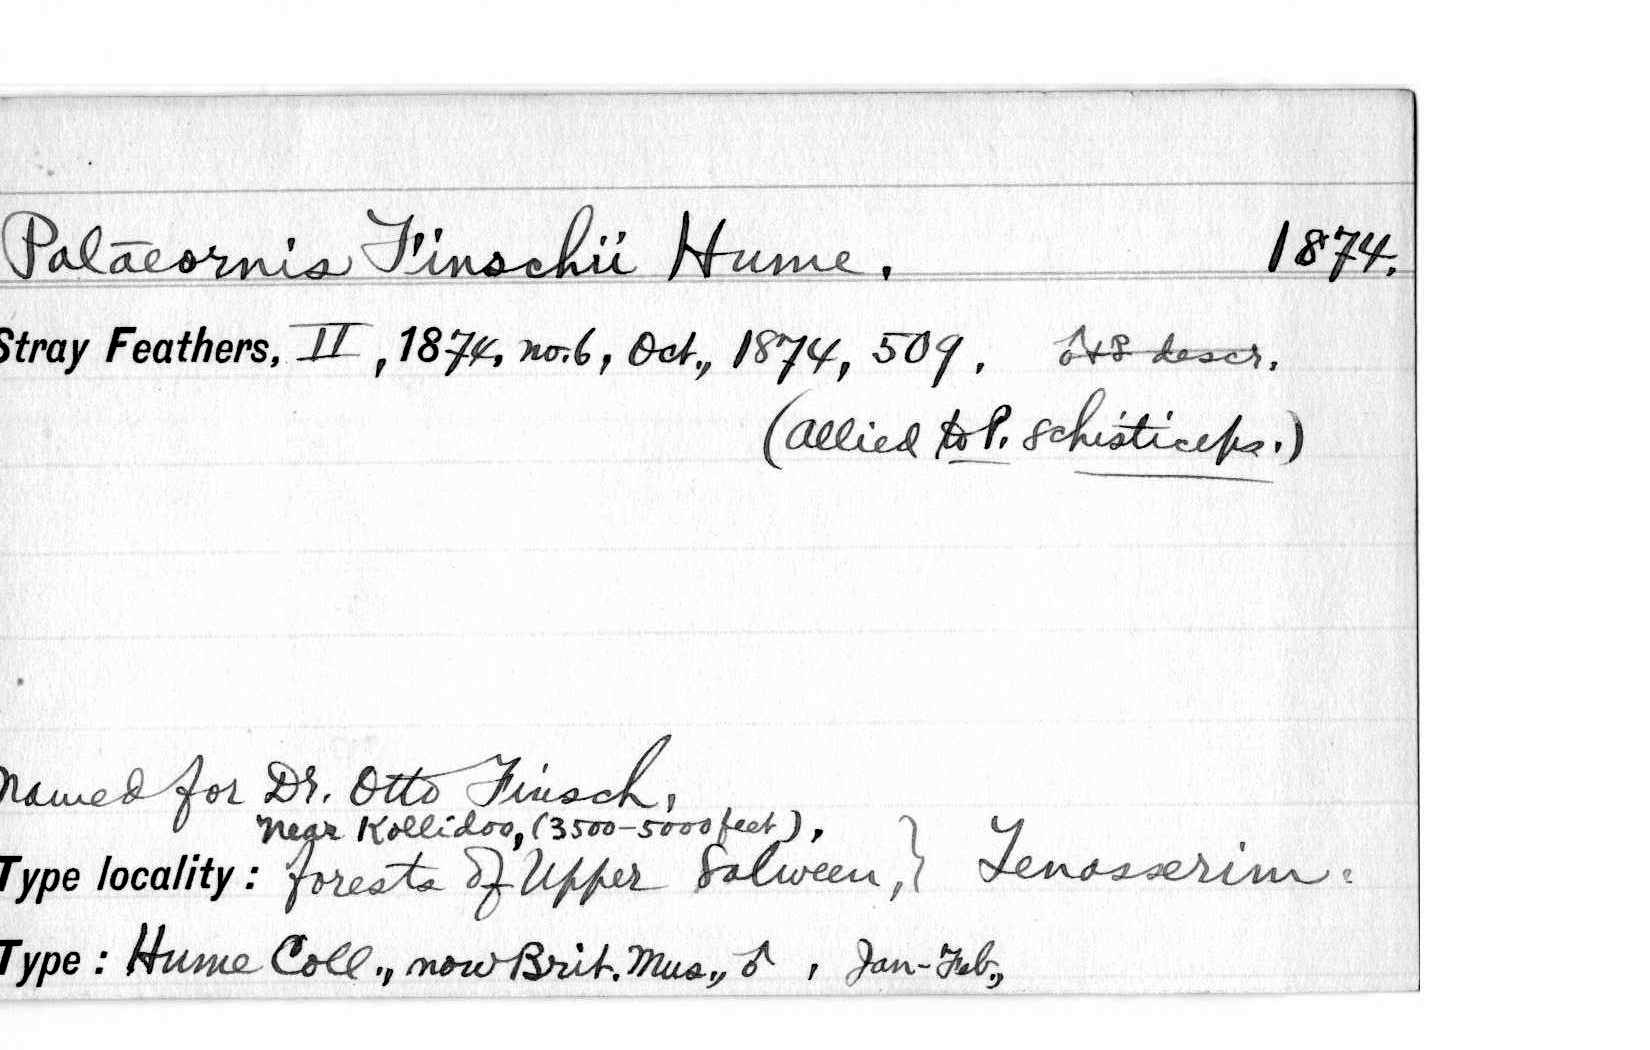 Palaeornis Finschii Hume. 1874.
Stray Feathers, II, 1874, no. 6, Oct., 1874, 509. ♂+♀ descr.
(allied to P. schisticeps.)
Named for Dr. Otto Finsch,
Near Kollidoo, (3500-5000 feet),
Type locality: forests of Upper Salween,} Tenasserim.
Type: Hume Coll., now Brit. Mus., ♂, Jan-Feb.,